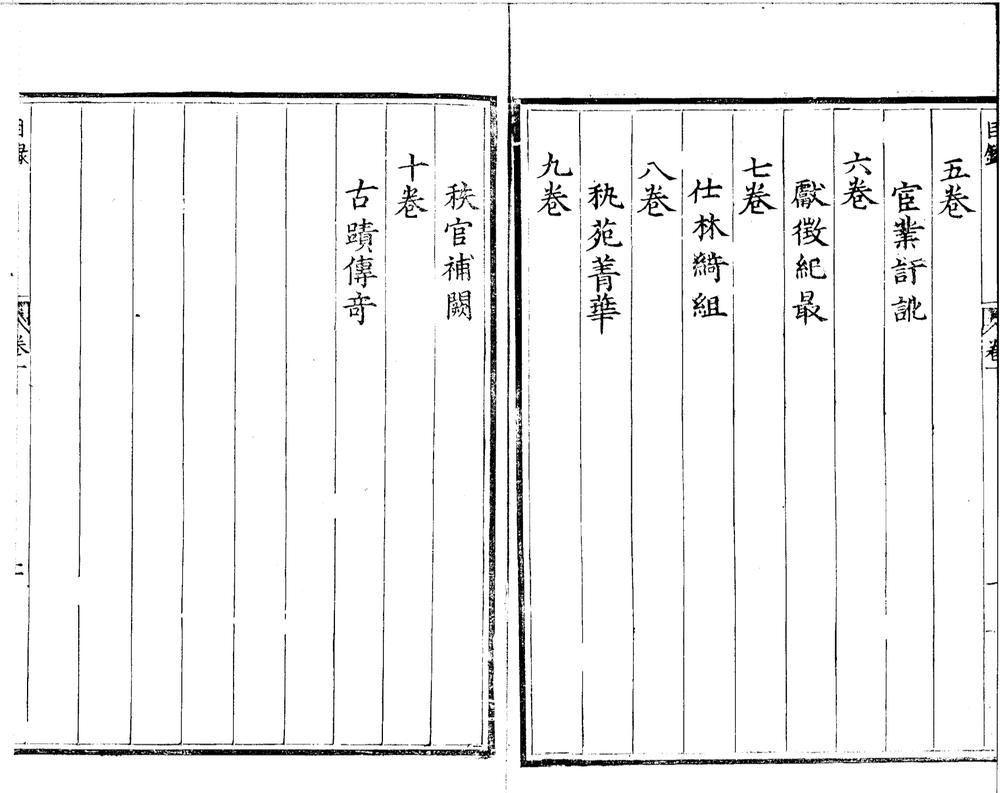 目錄
卷一
五卷
宦業評訛
六卷
獻徵紀最
七卷
仕林綺組
八卷
秇苑菁華
九卷
秩官補闕
十卷
古蹟傳奇
目錄
卷一